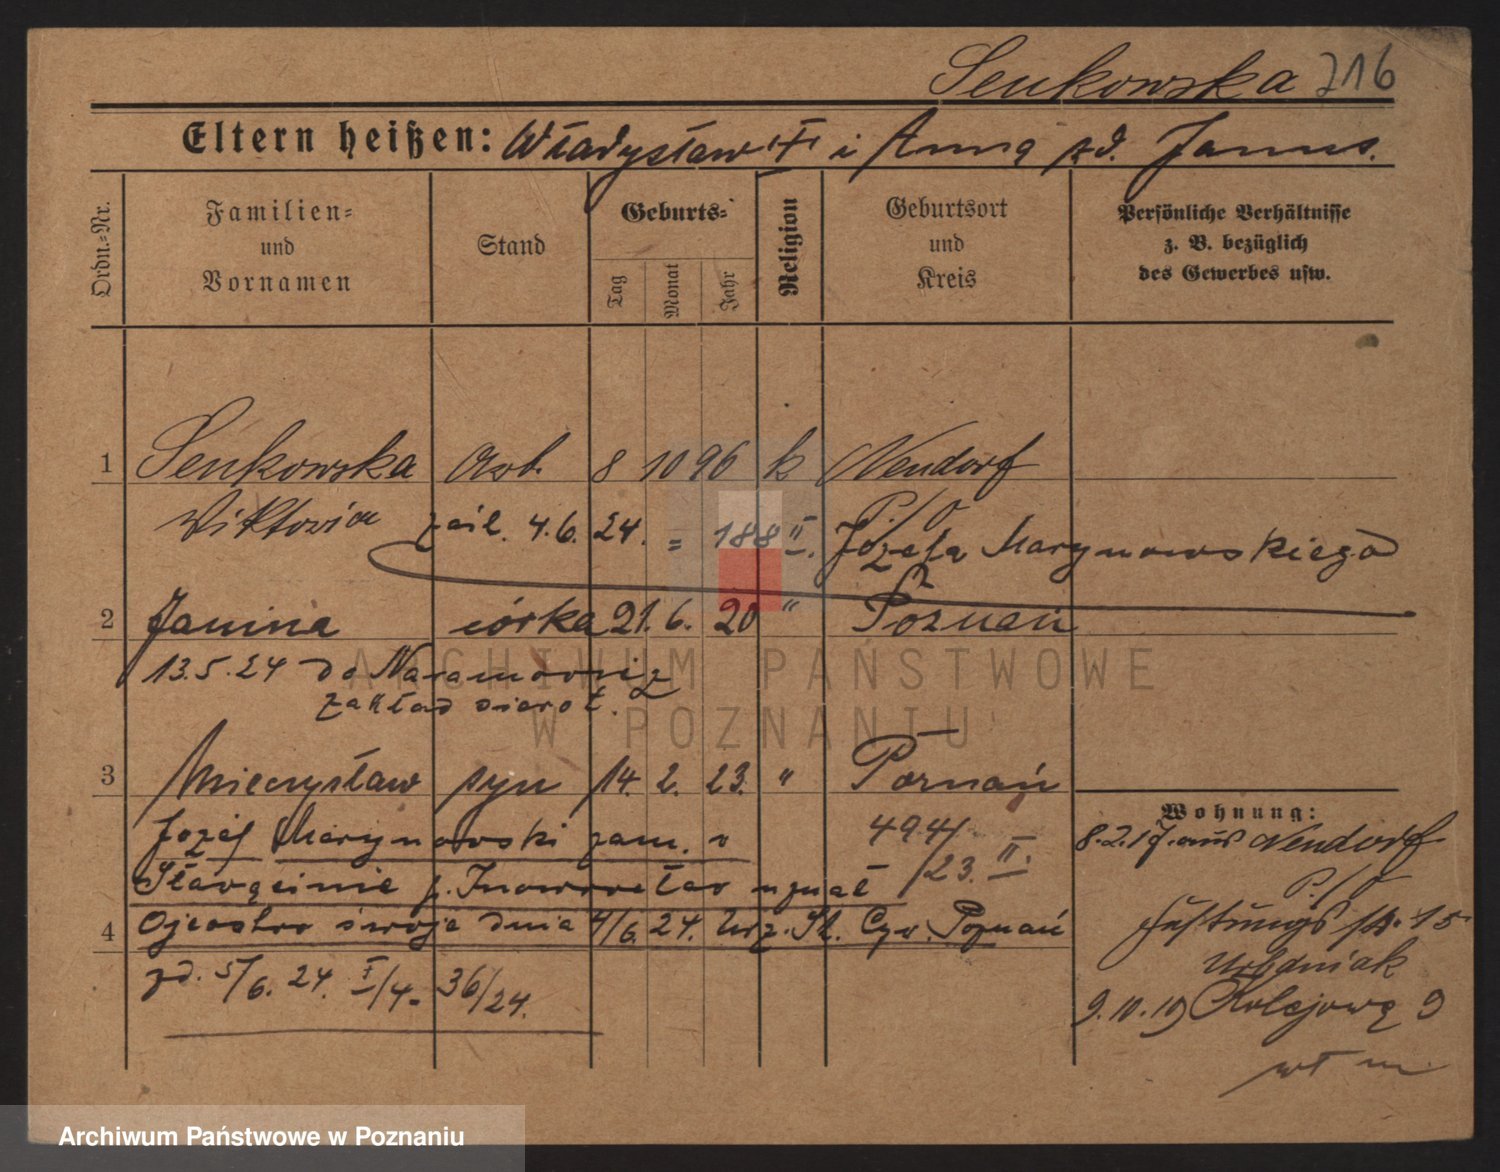 Senkowska 716
Eltern heißen: Władysław i Anna zd. Janus.
Ordn.=Nr.
Familien=
und
Vornamen
Stand
Geburts=
Tag
Monat
Jahr
Religion
Geburtsort
und
Kreis
Persönliche Verhältnisse
z. B. bezüglich
des Gewerbes usw.
1 Senkowska Arb. 8 10 96 k Neudorf
Wiktoria zaśl. 4.6.24. = 188 II. Józefa Marynowskiego
P./O
2 Janina córka 21. 6. 20 " Poznań
13.5.24 do Naramowic
zakład sierot.
3 Mieczysław syn 14. 2. 23. " Poznań
Józef Marynowski zam. w 4941/23. II.
p. Inowrocław uznał
4 Ojcostwo swoje dnia 4/6. 24. Urz. St. Cyw. Poznań
zd. 5/6. 24. I/4. 36/24.
Wohnung:
8.2.17. aus Neudorf
P./O
Festungsstr. 15
Urbaniak
9.10.19 Kolejowa 9
ARCHIWUM PAŃSTWOWE
W POZNANIU
Archiwum Państwowe w Poznaniu